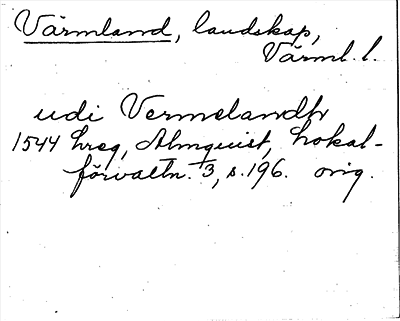 Värmland, landskap,
Värml. l.
udi Vermelandh
1544 hreg, Almquist, Lokal-
förvaltn. 3, s. 196. orig.